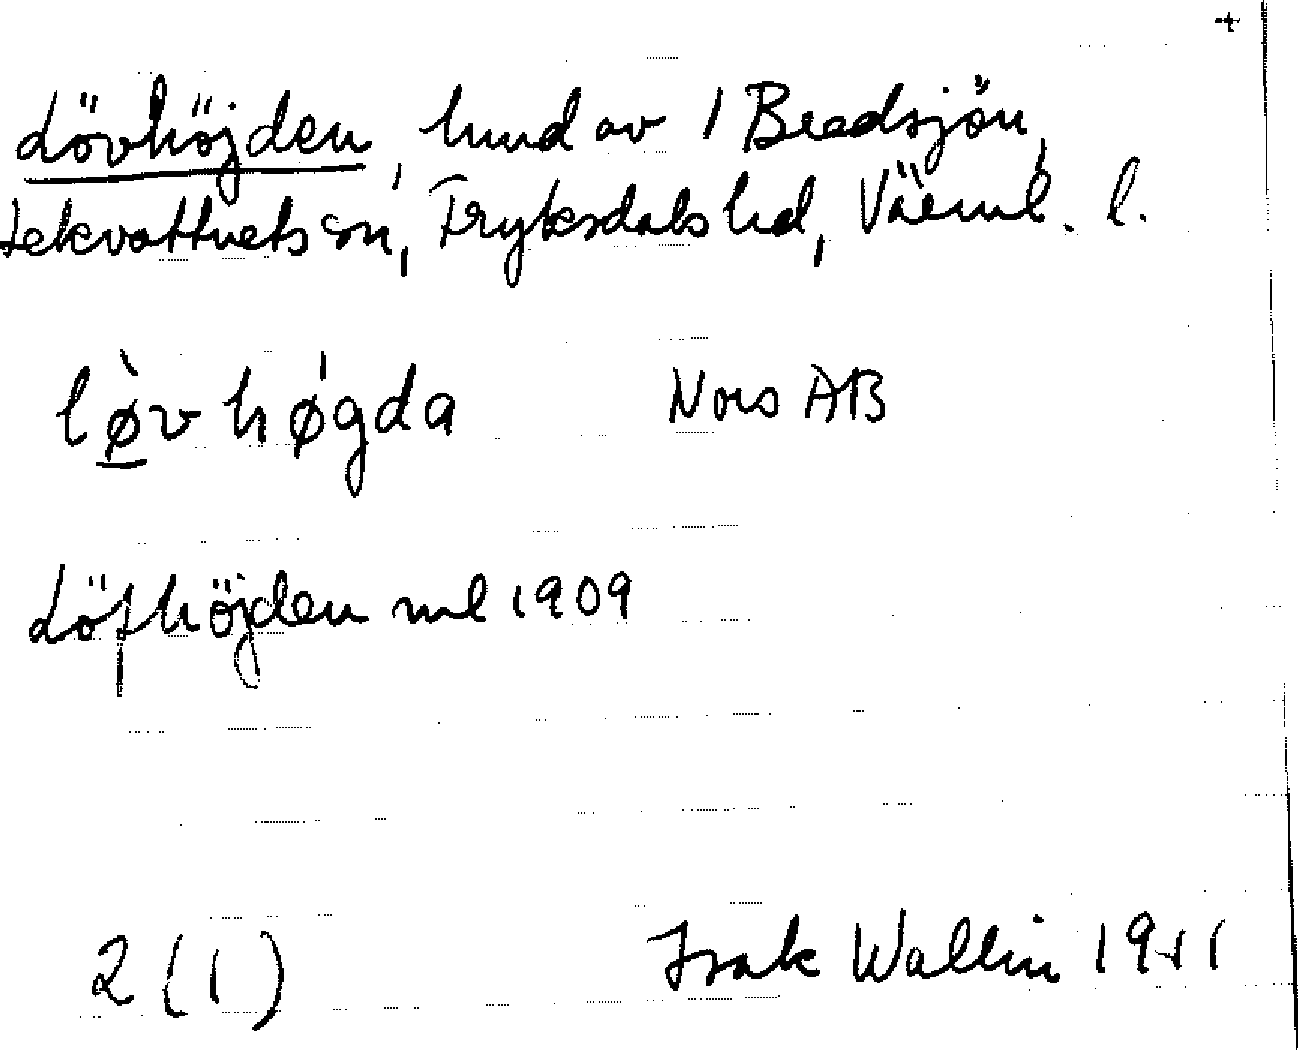 +
Lövhöjden, hmd av 1 Bredsjön,
Lekvattnets sn, Fryksdals hd, Värml. l.
lø̀vhǿgda Nors AB
Löfhöjden ml 1909
2 (1) Isak Wallin 1911